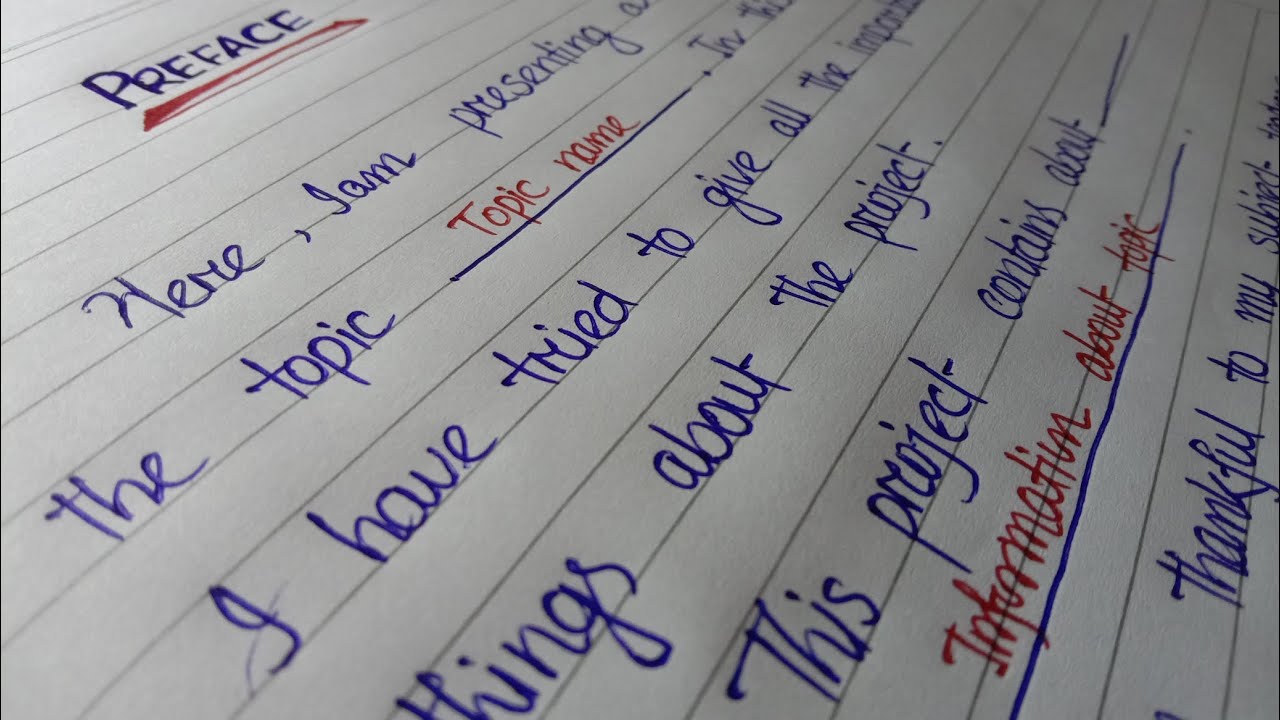 PREFACE
Here, I am presenting a
the topic Topic name. In this
I have tried to give all the important
things about the project.
This project contains about
Information about topic.
Thankful to my subject